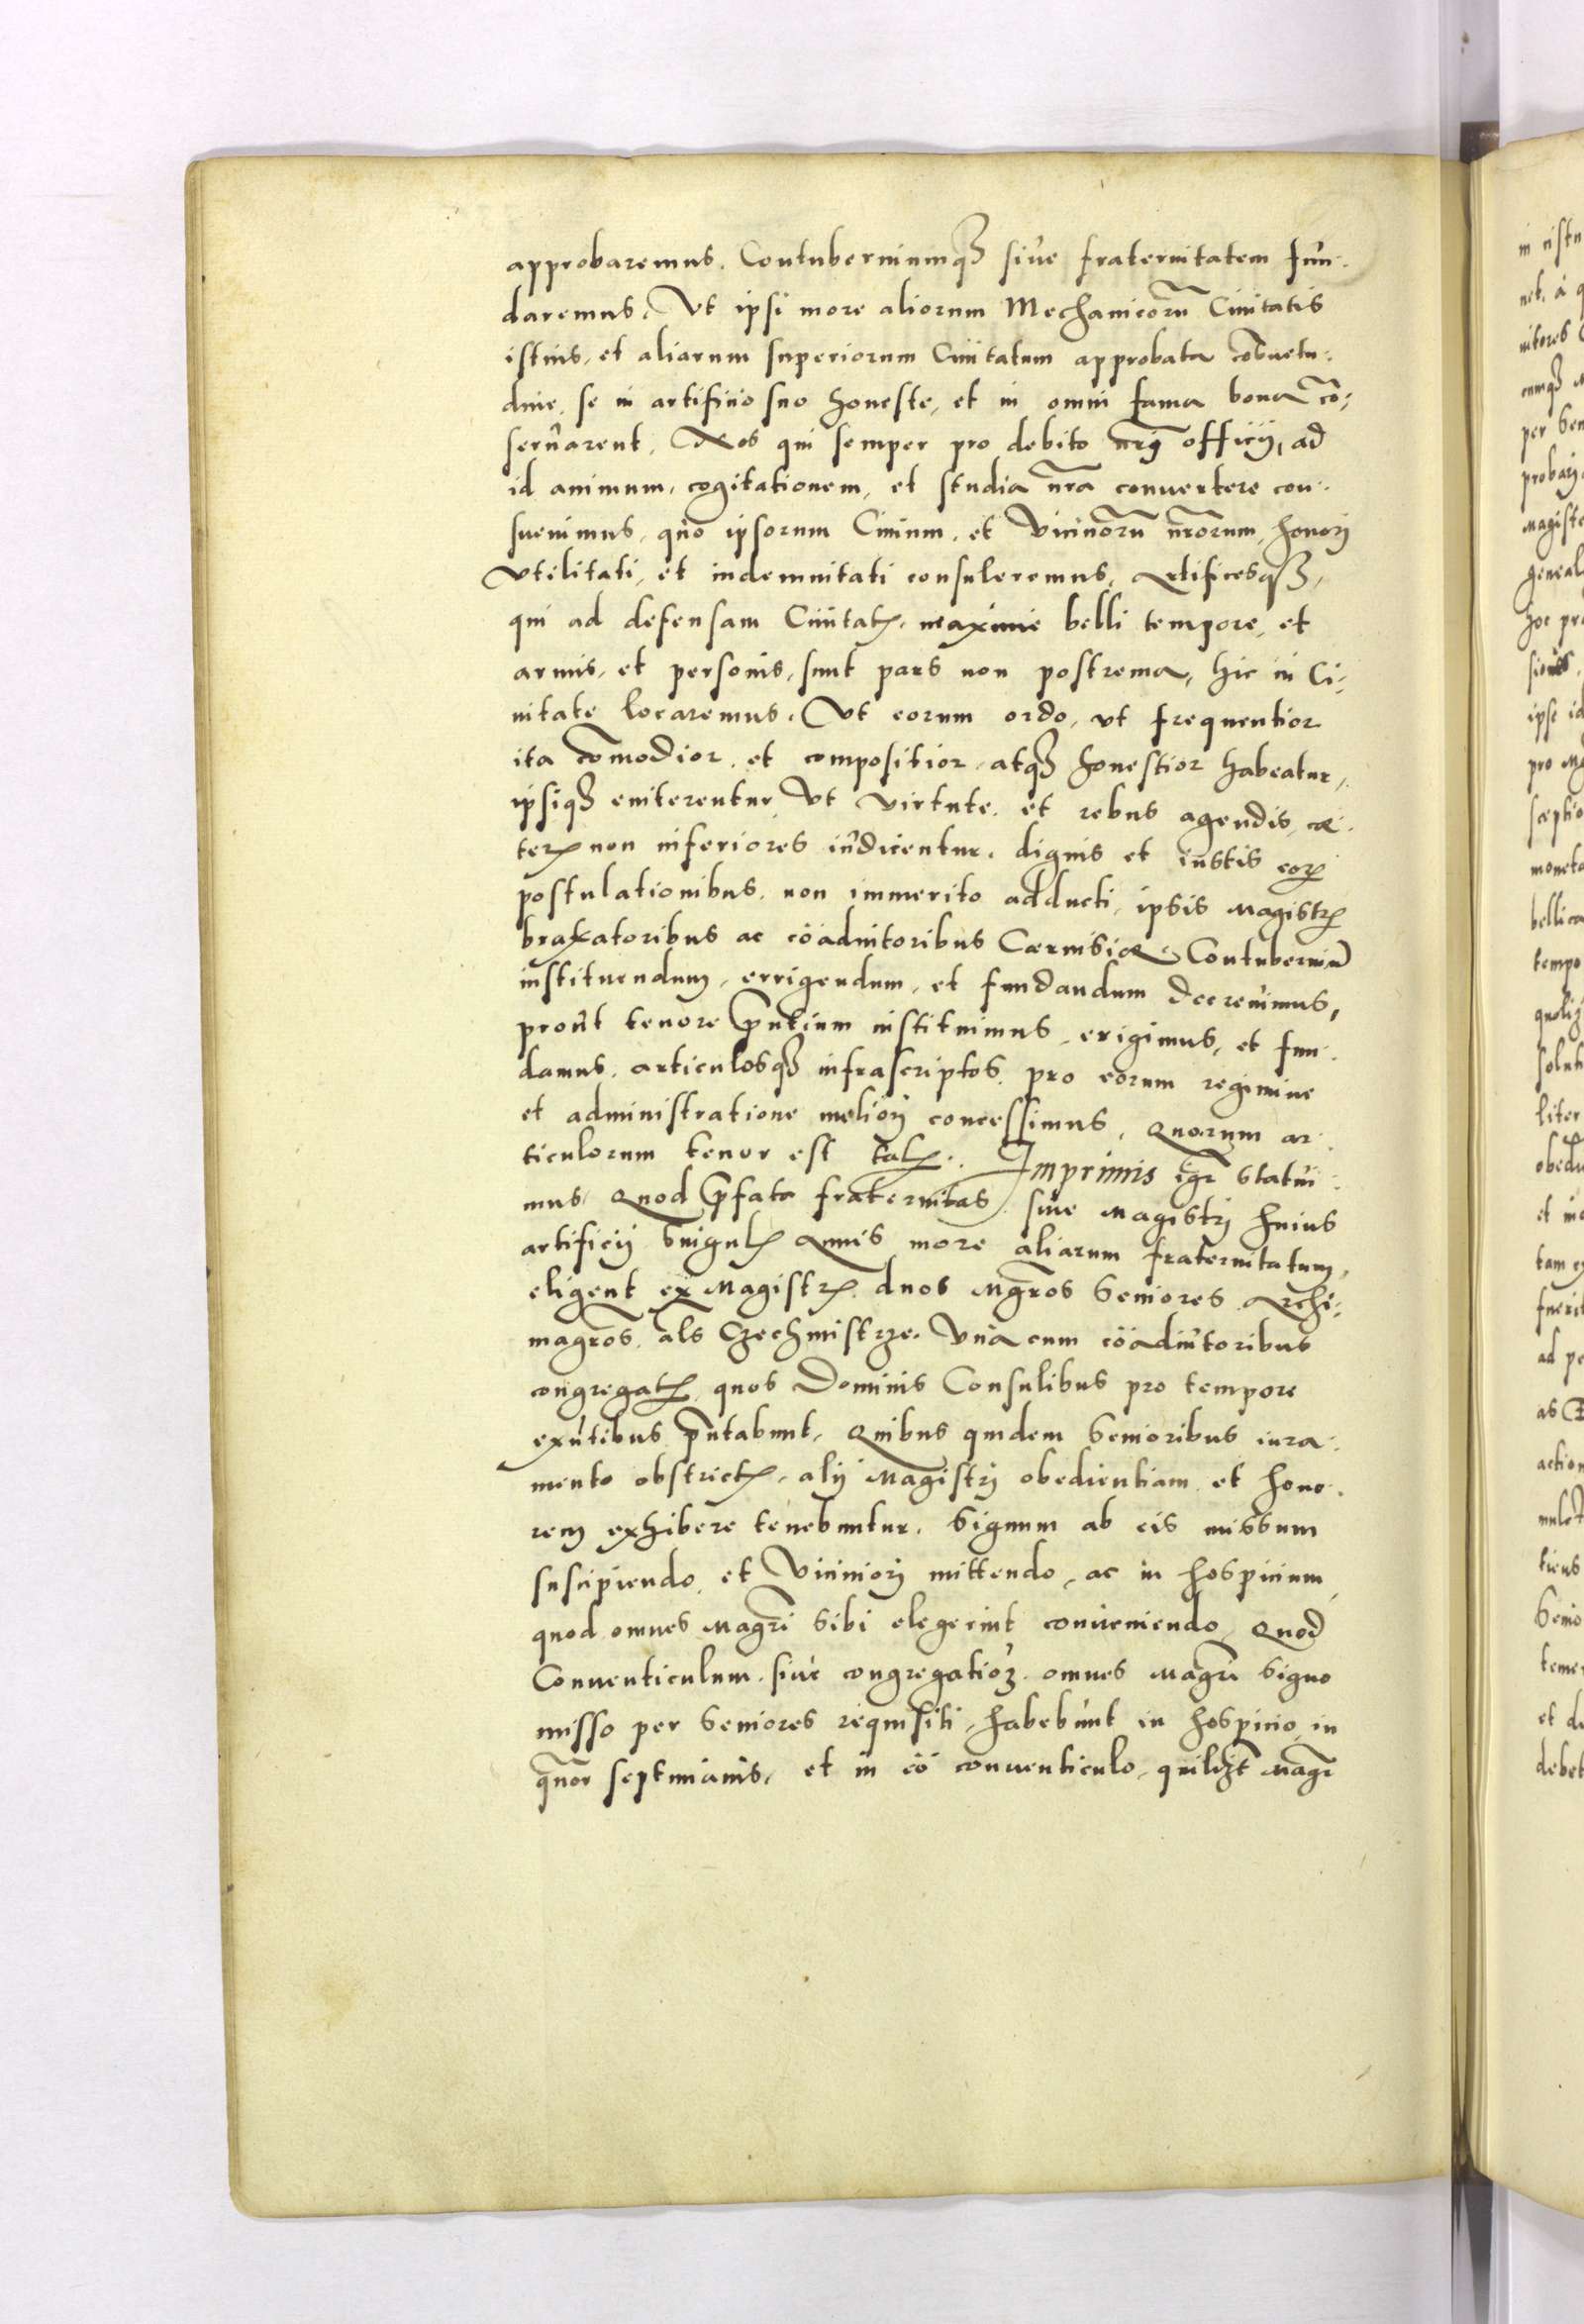 approbaremus. Contuberniumqȝ siue fraternitatem fun-
daremus. Vt ipsi more aliorum Mechanicorū Ciuitatis
istius, et aliarum superiorum Ciuitatum approbata cōsuetu-
dine, se in artificio suo honeste, et in omni fama bona cō-
seruarent. Nos qui semper pro debito nrĩ officij, ad
id animum, cogitationem, et studia nrā conuertere con-
sueuimus, quo ipsorum Ciuium, et Vicinorū nrōrum, honori
Vtilitati, et indemnitati consuleremus, Artificesqȝ,
qui ad defensam Ciuitatꝭ, maxime belli tempore, et
armis, et personis, sunt pars non postrema, hic in Ci-
uitate locaremus. Vt eorum ordo, vt frequentior
ita cōmodior, et compositior, atqȝ honestior habeatur,
ipsiqȝ eniterentur, Vt Virtute, et rebus agendis, cæ-
terꝭ non inferiores iudicentur, dignis et iustis eoꝝ
postulationibus, non immerito adducti, ipsis Magistrꝭ
braxatoribus ac coadiutoribus Cæruisiæ, Contuberniū
instituendum, errigendum, et fundandum decreuimus,
prout tenore p̄ntium instituimus, erigimus, et fun-
damus, articulosqȝ infrascriptos, pro eorum regimine
et administratione meliori concessimus. Quorum ar-
ticulorum tenor est talꝭ. Imprimis igr̄ statui-
mus, Quod p̄fata fraternitas, siue Magistri huius
artificij singulꝭ Annis more aliarum fraternitatum,
eligent ex Magistrꝭ duos Mgrōs Seniores Archi-
magrōs, als Czechmistrze, Vna cum coadiutoribus
congregatꝭ, quos Dominis Consulibus pro tempore
exñtibus p̄ntabunt, Quibus quidem Senioribus iura-
mento obstrictꝭ, alij Magistri obedientiam et hono-
rem exhibere tenebuntur. Signum ab eis missum
suscipiendo, et Viciniori mittendo, ac in hospicium,
quod omnes Magrī sibi elegerint conueniendo, Quod
Conuenticulum, siue congregatioȝ, omnes Magrī signo
misso per Seniores requisiti, habebunt in hospicio, in
quor septimanis, et in eo conuenticulo, quilȝt Magr̄